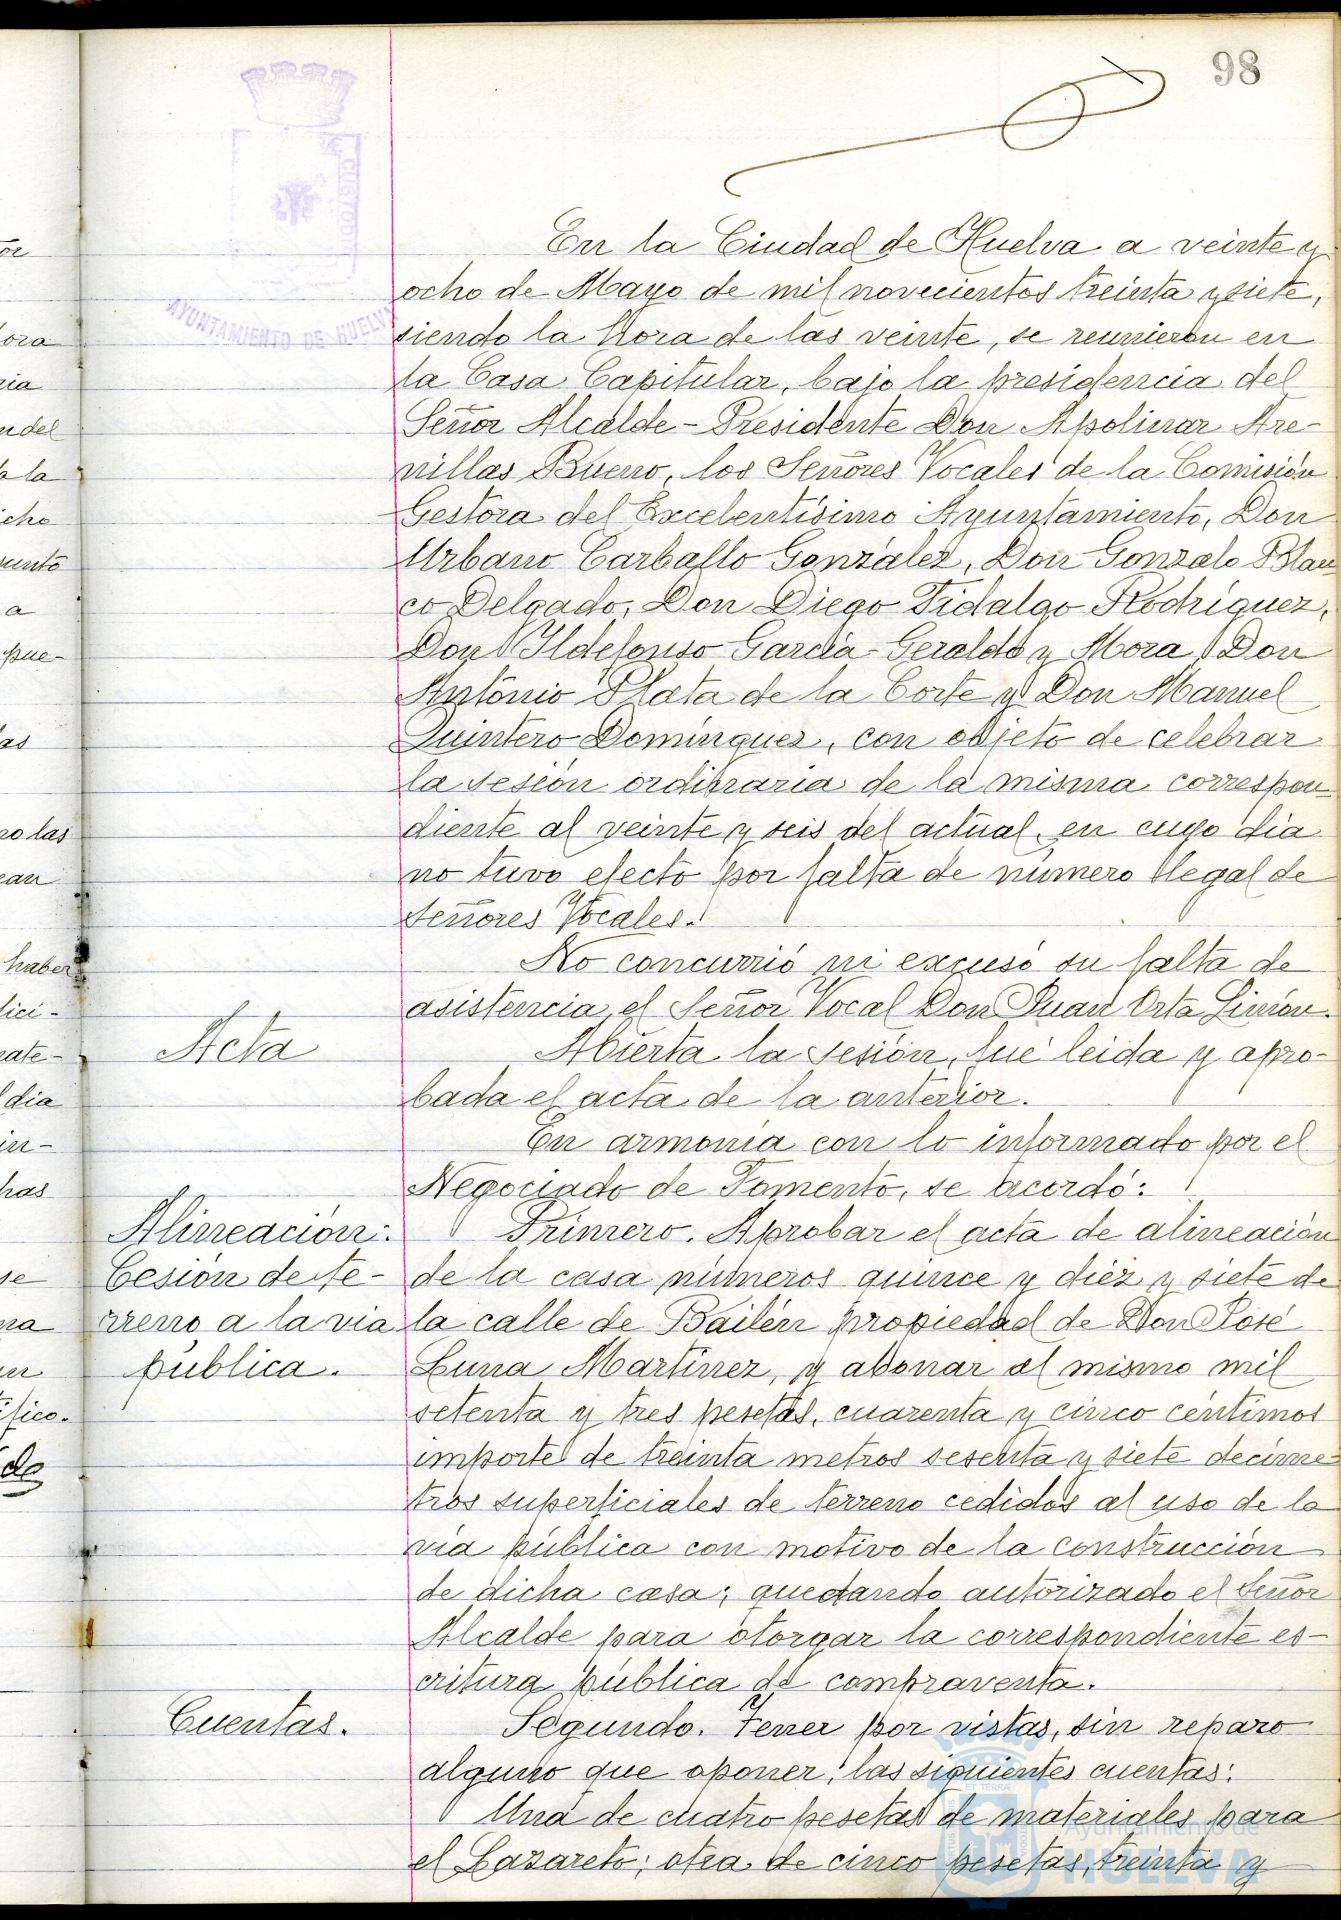 98
AYUNTAMIENTO DE HUELVA
En la Ciudad de Huelva a veinte y
ocho de Mayo de mil novecientos treinta y siete,
siendo la hora de las veinte, se reunieron en
la Casa Capitular, bajo la presidencia del
Señor Alcalde-Presidente Don Apolinar Are-
nillas Bueno, los Señores Vocales de la Comisión
Gestora del Excelentísimo Ayuntamiento, Don
Urbano Carballo González, Don Gonzalo Blan-
co Delgado, Don Diego Fidalgo Rodríguez,
Don Ildefonso García-Geraldo y Mora, Don
Antonio Plata de la Corte y Don Manuel
Quintero Domínguez, con objeto de celebrar
la sesión ordinaria de la misma correspon-
diente al veinte y seis del actual, en cuyo dia
no tuvo efecto por falta de número legal de
Señores Vocales.
No concurrió ni excusó su falta de
asistencia el Señor Vocal Don Juan Orta Limón.
Acta
Abierta la sesión, fué leida y apro-
bada el acta de la anterior.
En armonía con lo informado por el
Negociado de Fomento, se acordó:
Alineación:
Cesión de te-
rreno a la via
pública.
Primero. Aprobar el acta de alineación
de la casa números quince y diez y siete de
la calle de Bailén propiedad de Don José
Luna Martínez, y abonar al mismo mil
setenta y tres pesetas, cuarenta y cinco céntimos
importe de treinta metros sesenta y siete decíme-
tros superficiales de terreno cedidos al uso de la
vía pública con motivo de la construcción
de dicha casa; quedando autorizado el Señor
Alcalde para otorgar la correspondiente es-
critura pública de compraventa.
Cuentas.
Segundo. Tener por vistas, sin reparo
alguno que oponer, las siguientes cuentas:
Una de cuatro pesetas de materiales para
el Lazareto; otra de cinco pesetas, treinta y
Ayuntamiento de
HUELVA